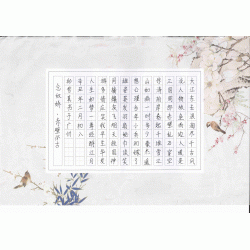 大江东去浪淘尽千古风
流人物故垒西边人道是
三国周郎赤壁乱石穿空
惊涛拍岸卷起千堆雪江
山如画一时多少豪杰遥
想公瑾当年小乔初嫁了
雄姿英发羽扇纶巾谈笑
间樯橹灰飞烟灭故国神
游多情应笑我早生华发
人生如梦一尊还酹江月
书于广州
念奴娇·赤壁怀古